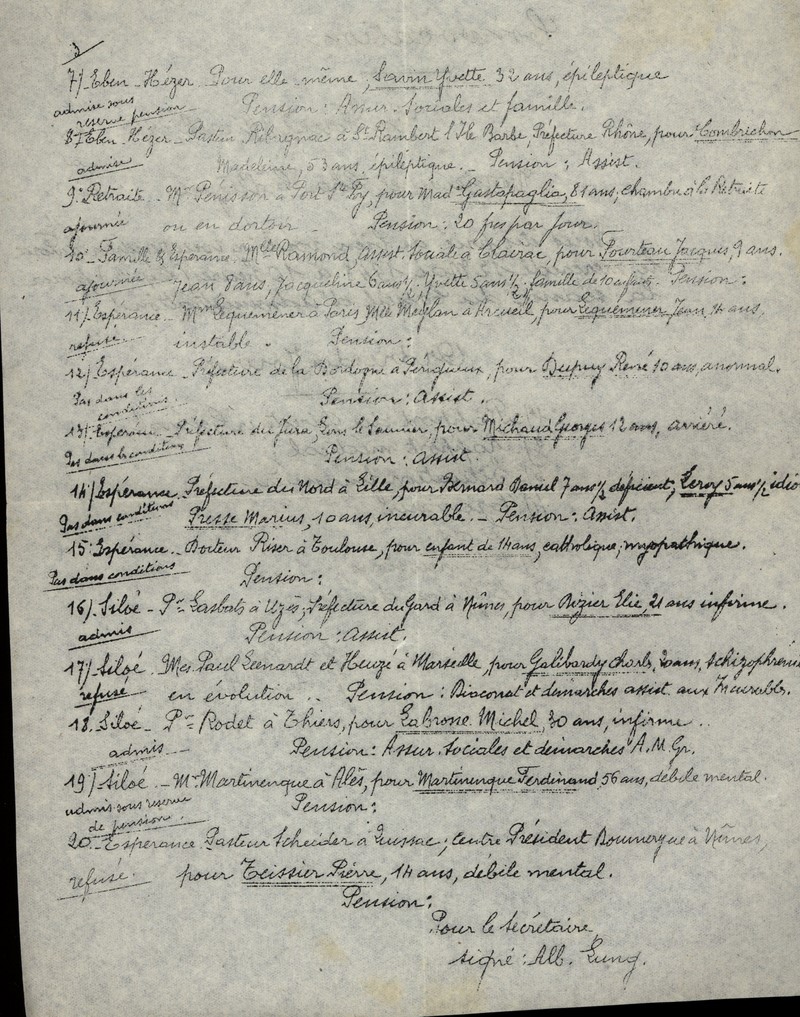 3
7/ Eben-Hézer. Pour elle-même, Savin Yvette 32 ans, épileptique
admise sous réserve pension
Pension: Assur. Sociales et famille.
8/ Eben-Hézer. Pasteur à St-Rambert l'Ile Barbe, Préfecture Rhône, pour Combrichon
admise
Madeleine, 53 ans, épileptique. - Pension: Assist.
9° Retraite. - Mr Pénisson à Port Ste Foy, pour Made Gastapaglia, 81 ans, chambre à la Retraite
ajournée
ou en dortoir - Pension: 20 frcs par jour.
10° - Famille & Espérance. Melle Ramond, Assist. Sociale à Clairac, pour Pourteau Jacques, 9 ans.
ajournée
Jean 8 ans, Jacqueline 6 ans ½, Yvette 5 ans ½, famille de 10 enfants. Pension:
11/ Espérance. Mme Lequemener à Paris, Melle à Arcueil, pour Lequemener Jean, 14 ans,
refusé
instable. Pension:
12/ Espérance - Préfecture de la Dordogne à Périgueux, pour Dupuy René 10 ans, anormal.
Pas dans les conditions.
Pension: Assist.
13/ Espérance. - Préfecture du Jura, Lons le Saunier, pour Michaud Georges 12 ans, arriéré.
Pas dans les conditions
Pension: Assist.
14/ Espérance. Préfecture du Nord à Lille, pour Bernard Daniel 7 ans ½ déficient; Leroy 5 ans ½ idio
Pas dans conditions
Presse Marius, 10 ans, incurable. - Pension: Assist.
15/ Espérance. - Docteur Riser à Toulouse, pour enfant de 14 ans, catholique, myopathique.
Pas dans conditions
Pension:
16/. Siloé - Pr Gasbats à Uzès, Préfecture du Gard à Nîmes, pour Bizier Elie, 21 ans infirme.
admis
Pension: Assist.
17/. Siloé. Mes. Paul Leenardt et Heuzé à Marseille, pour Galibardy Charls, 20 ans, schizophrénie
refusé
en évolution. - Pension: Diaconat et démarches assist. aux Incurabls.
18. Siloé - Pr Rodet à Thiers, pour Labrosse Michel, 30 ans, infirme.
admis
Pension: Assur. Sociales et démarches A.M.Gr.
19/ Siloé. - Mr Martinenque à Alès, pour Martinenque Ferdinand, 56 ans, débile mental.
admis sous réserve de pension
Pension:
20. - Espérance. Pasteur Scheider à Lussac, Centre Président Doumergue à Nîmes,
refusé.
pour Teissier Pierre, 14 ans, débile mental.
Pension:
Pour le Secrétaire
signé: Alb. Lung.